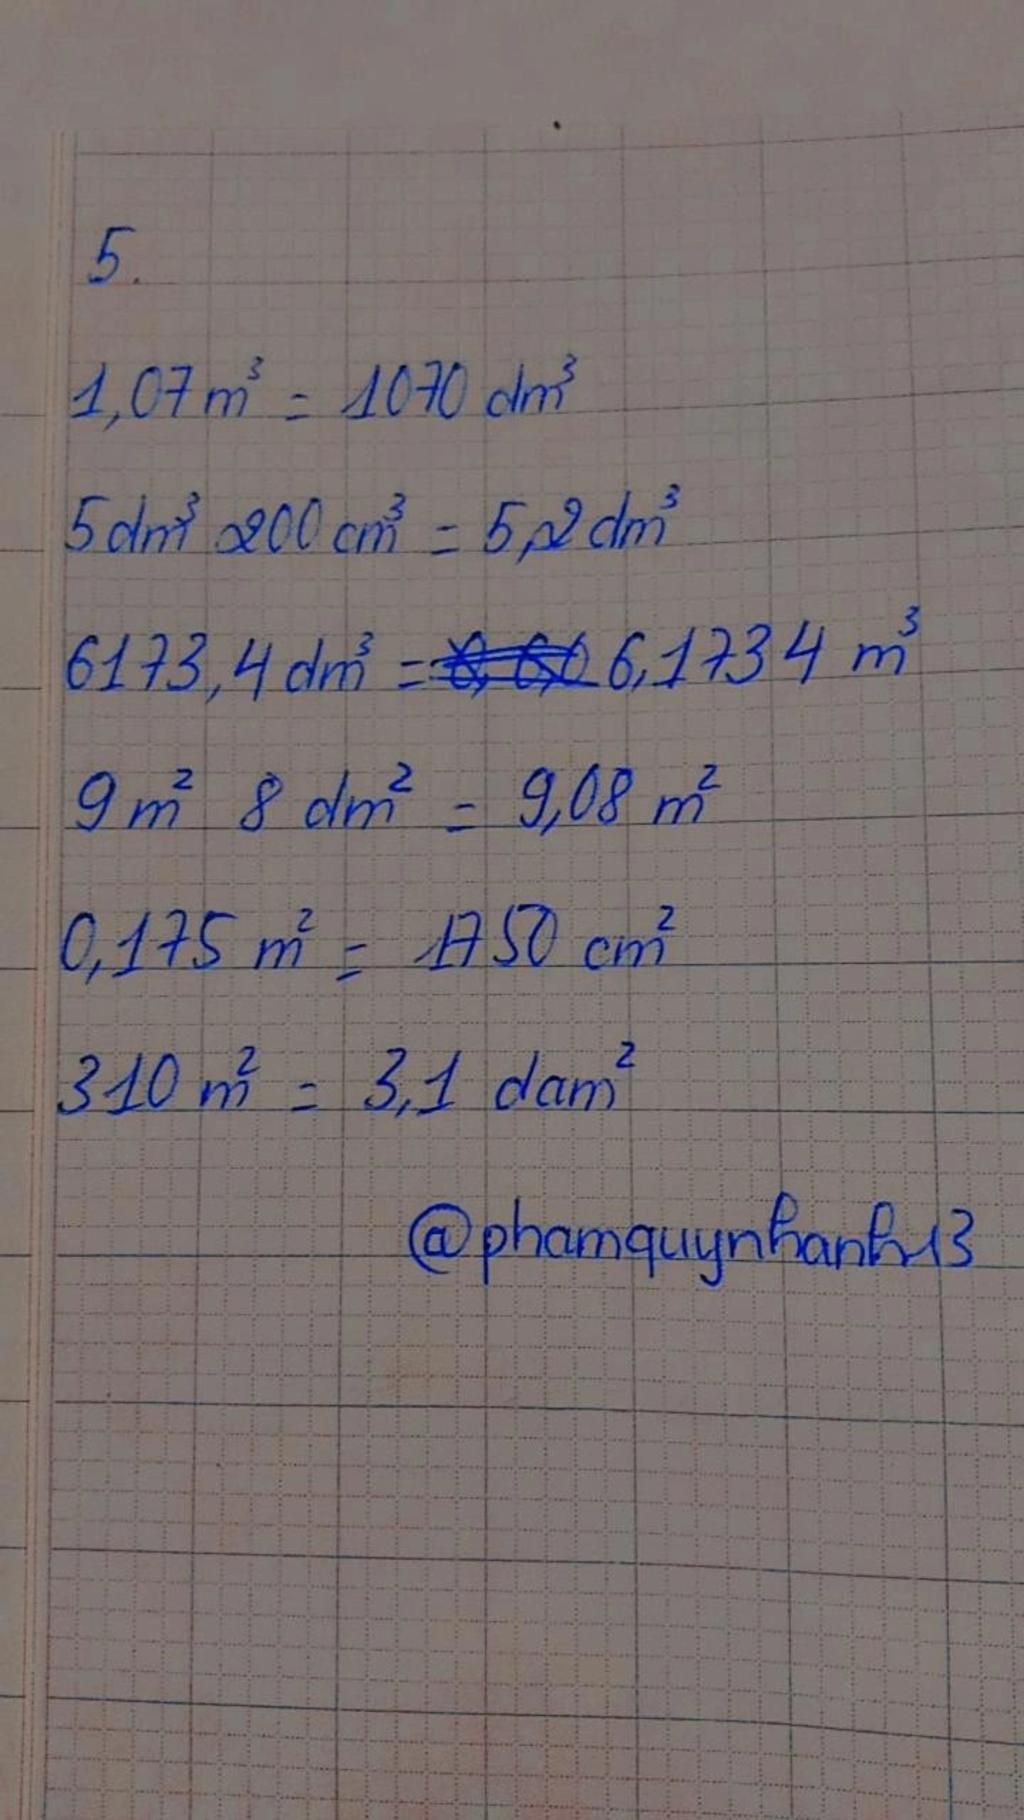 5.
1,07 m³ = 1070 dm³
5 dm³ 200 cm³ = 5,2 dm³
6173,4 dm³ = 6,1734 m³
9 m² 8 dm² = 9,08 m²
0,175 m² = 1750 cm²
310 m² = 3,1 dam²
@phamquynhanh13